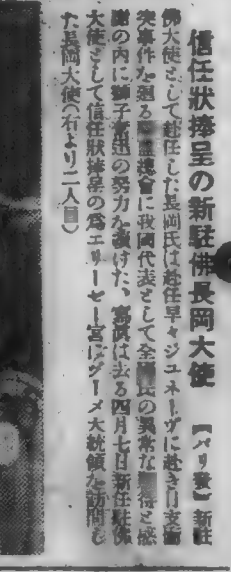 信任狀捧呈の新駐佛長岡大使
【パリ發】新駐
佛大使として赴任した長岡氏は赴任早々ジユネーヴに赴き日支衝
突事件を廻る聯盟總會に我國代表として全國民の異常な期待と感
謝の内に獅子奮迅の努力を續けた、寫眞は去る四月七日新任駐佛
大使として信任狀捧呈の爲エリーゼー宮にヅーメ大統領を訪問し
た長岡大使(右より二人目)